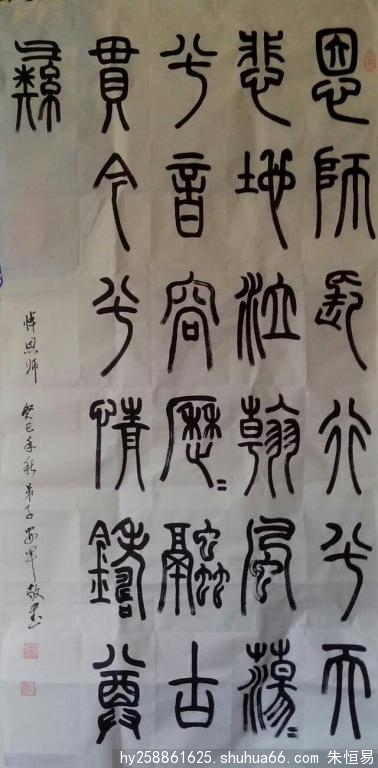 恩師長行兮天
悲地泣翰風蕩〻
兮音容歷〻融古
貫今兮情鑄尊
彝
悼恩师 癸巳年秋弟子敬書
hy258861625.shuhua66.com 朱恒易